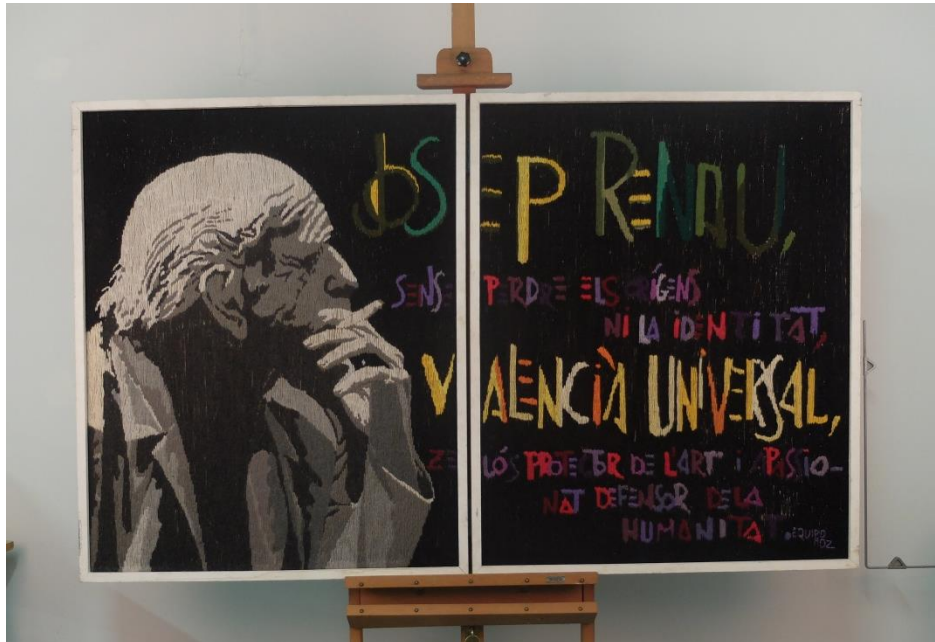 JOSEP RENAU,
SENSE PERDRE ELS ORÍGENS
NI LA IDENTITAT,
VALENCIÀ UNIVERSAL,
ZELÓS PROTECTOR DE L'ART I APASSIO-
NAT DEFENSOR DE LA
HUMANITAT.
EQUIPO